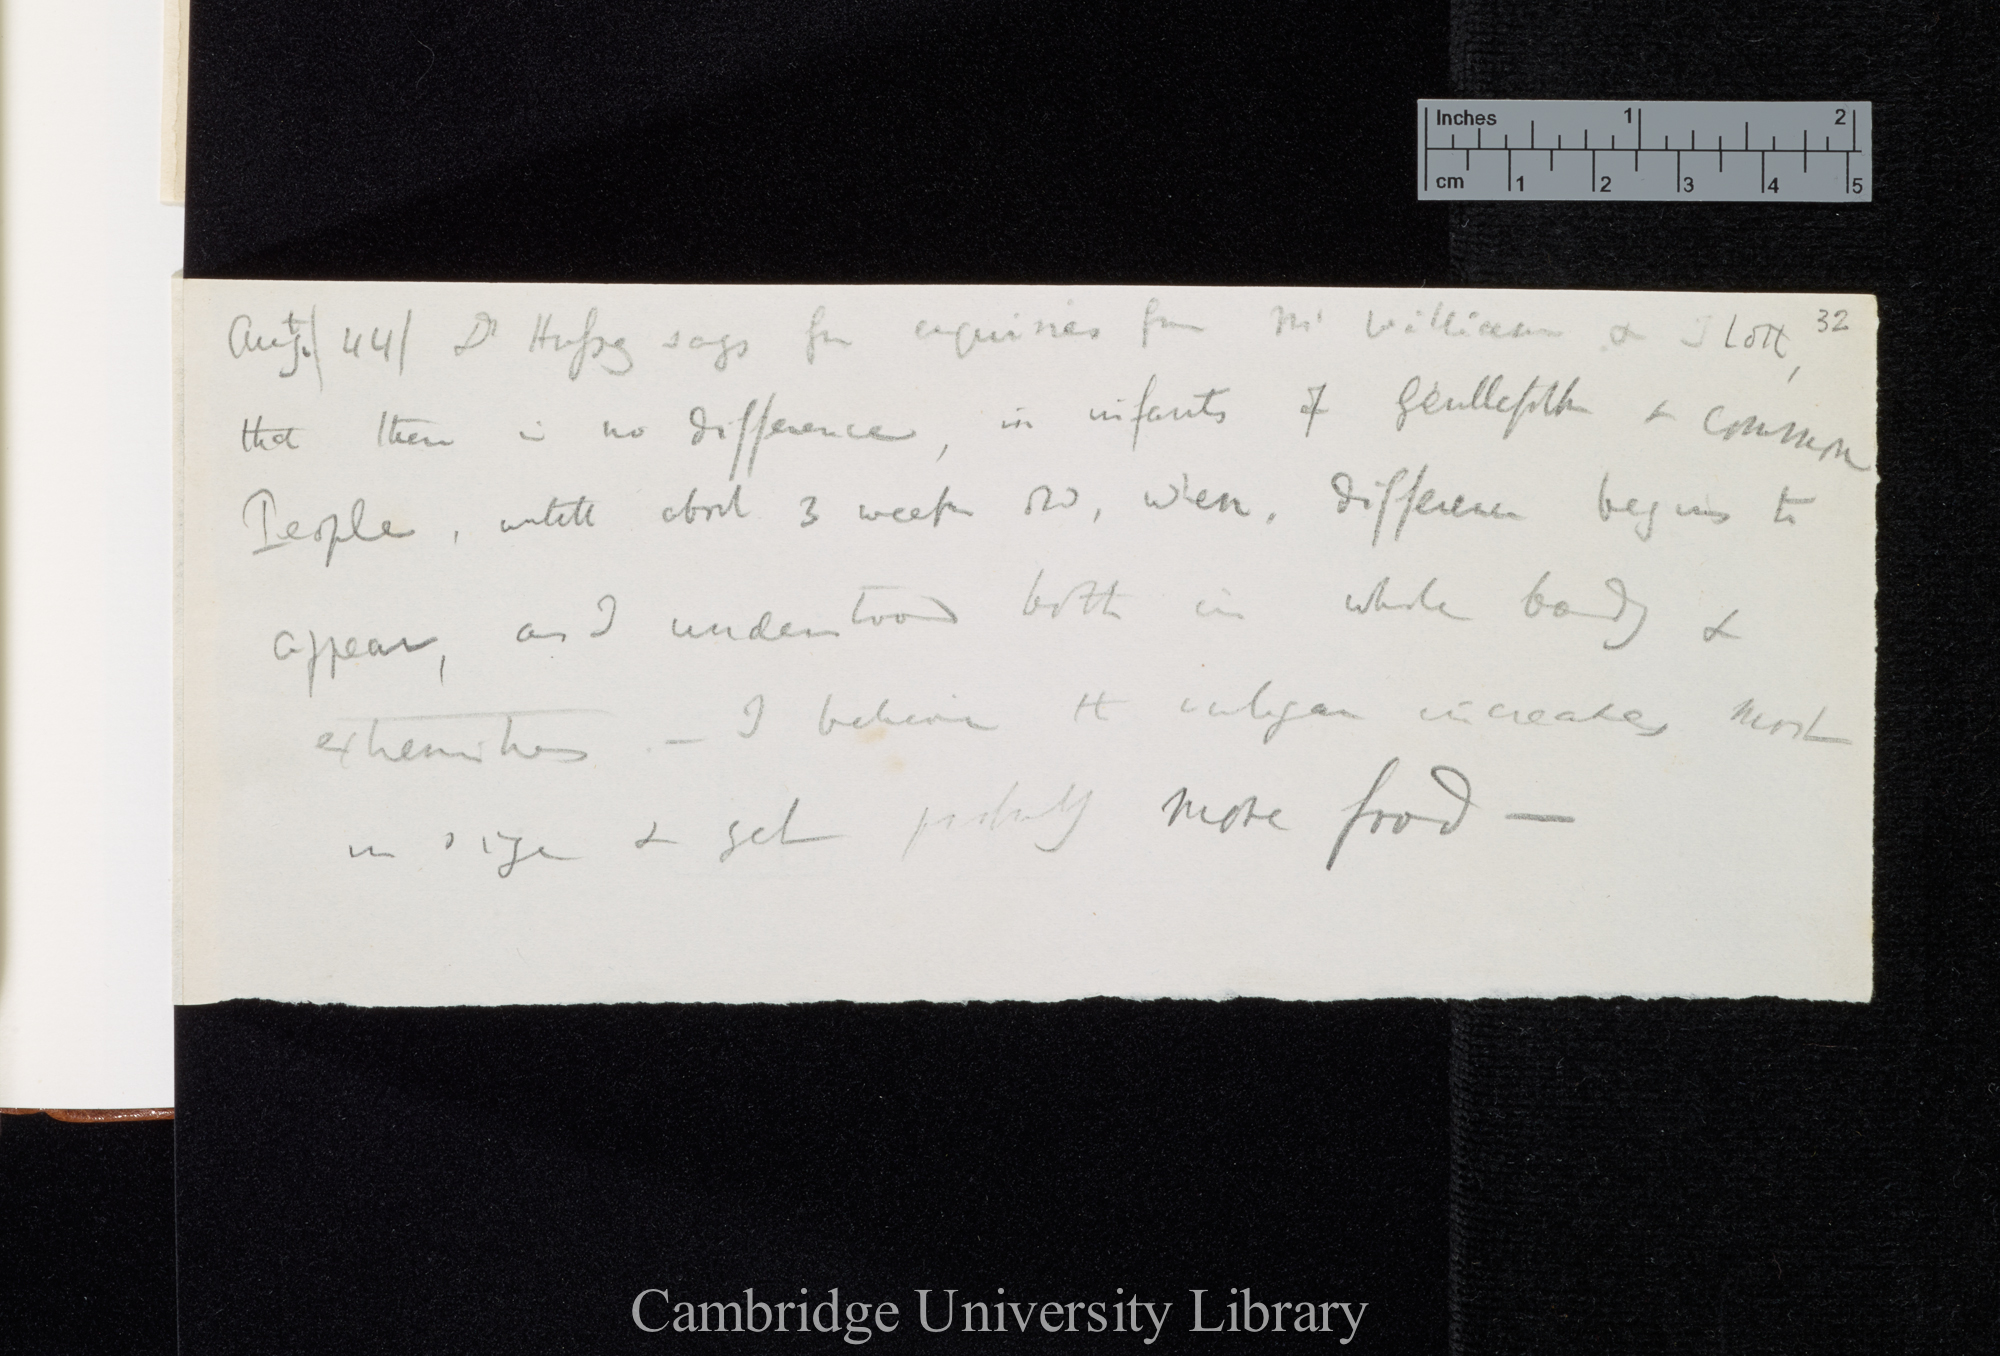 Inches 1 2
cm 1 2 3 4 5
32
Augt/ 44/ Dr Hussey says from enquiries from Mr William &
that there is no difference, in infants of Gentlefolk & common
People, untill about 3 weeks old, when, difference begins to
appear, as I understood both in whole body &
extremities — I believe increases most
in size & get probably more food —
Cambridge University Library